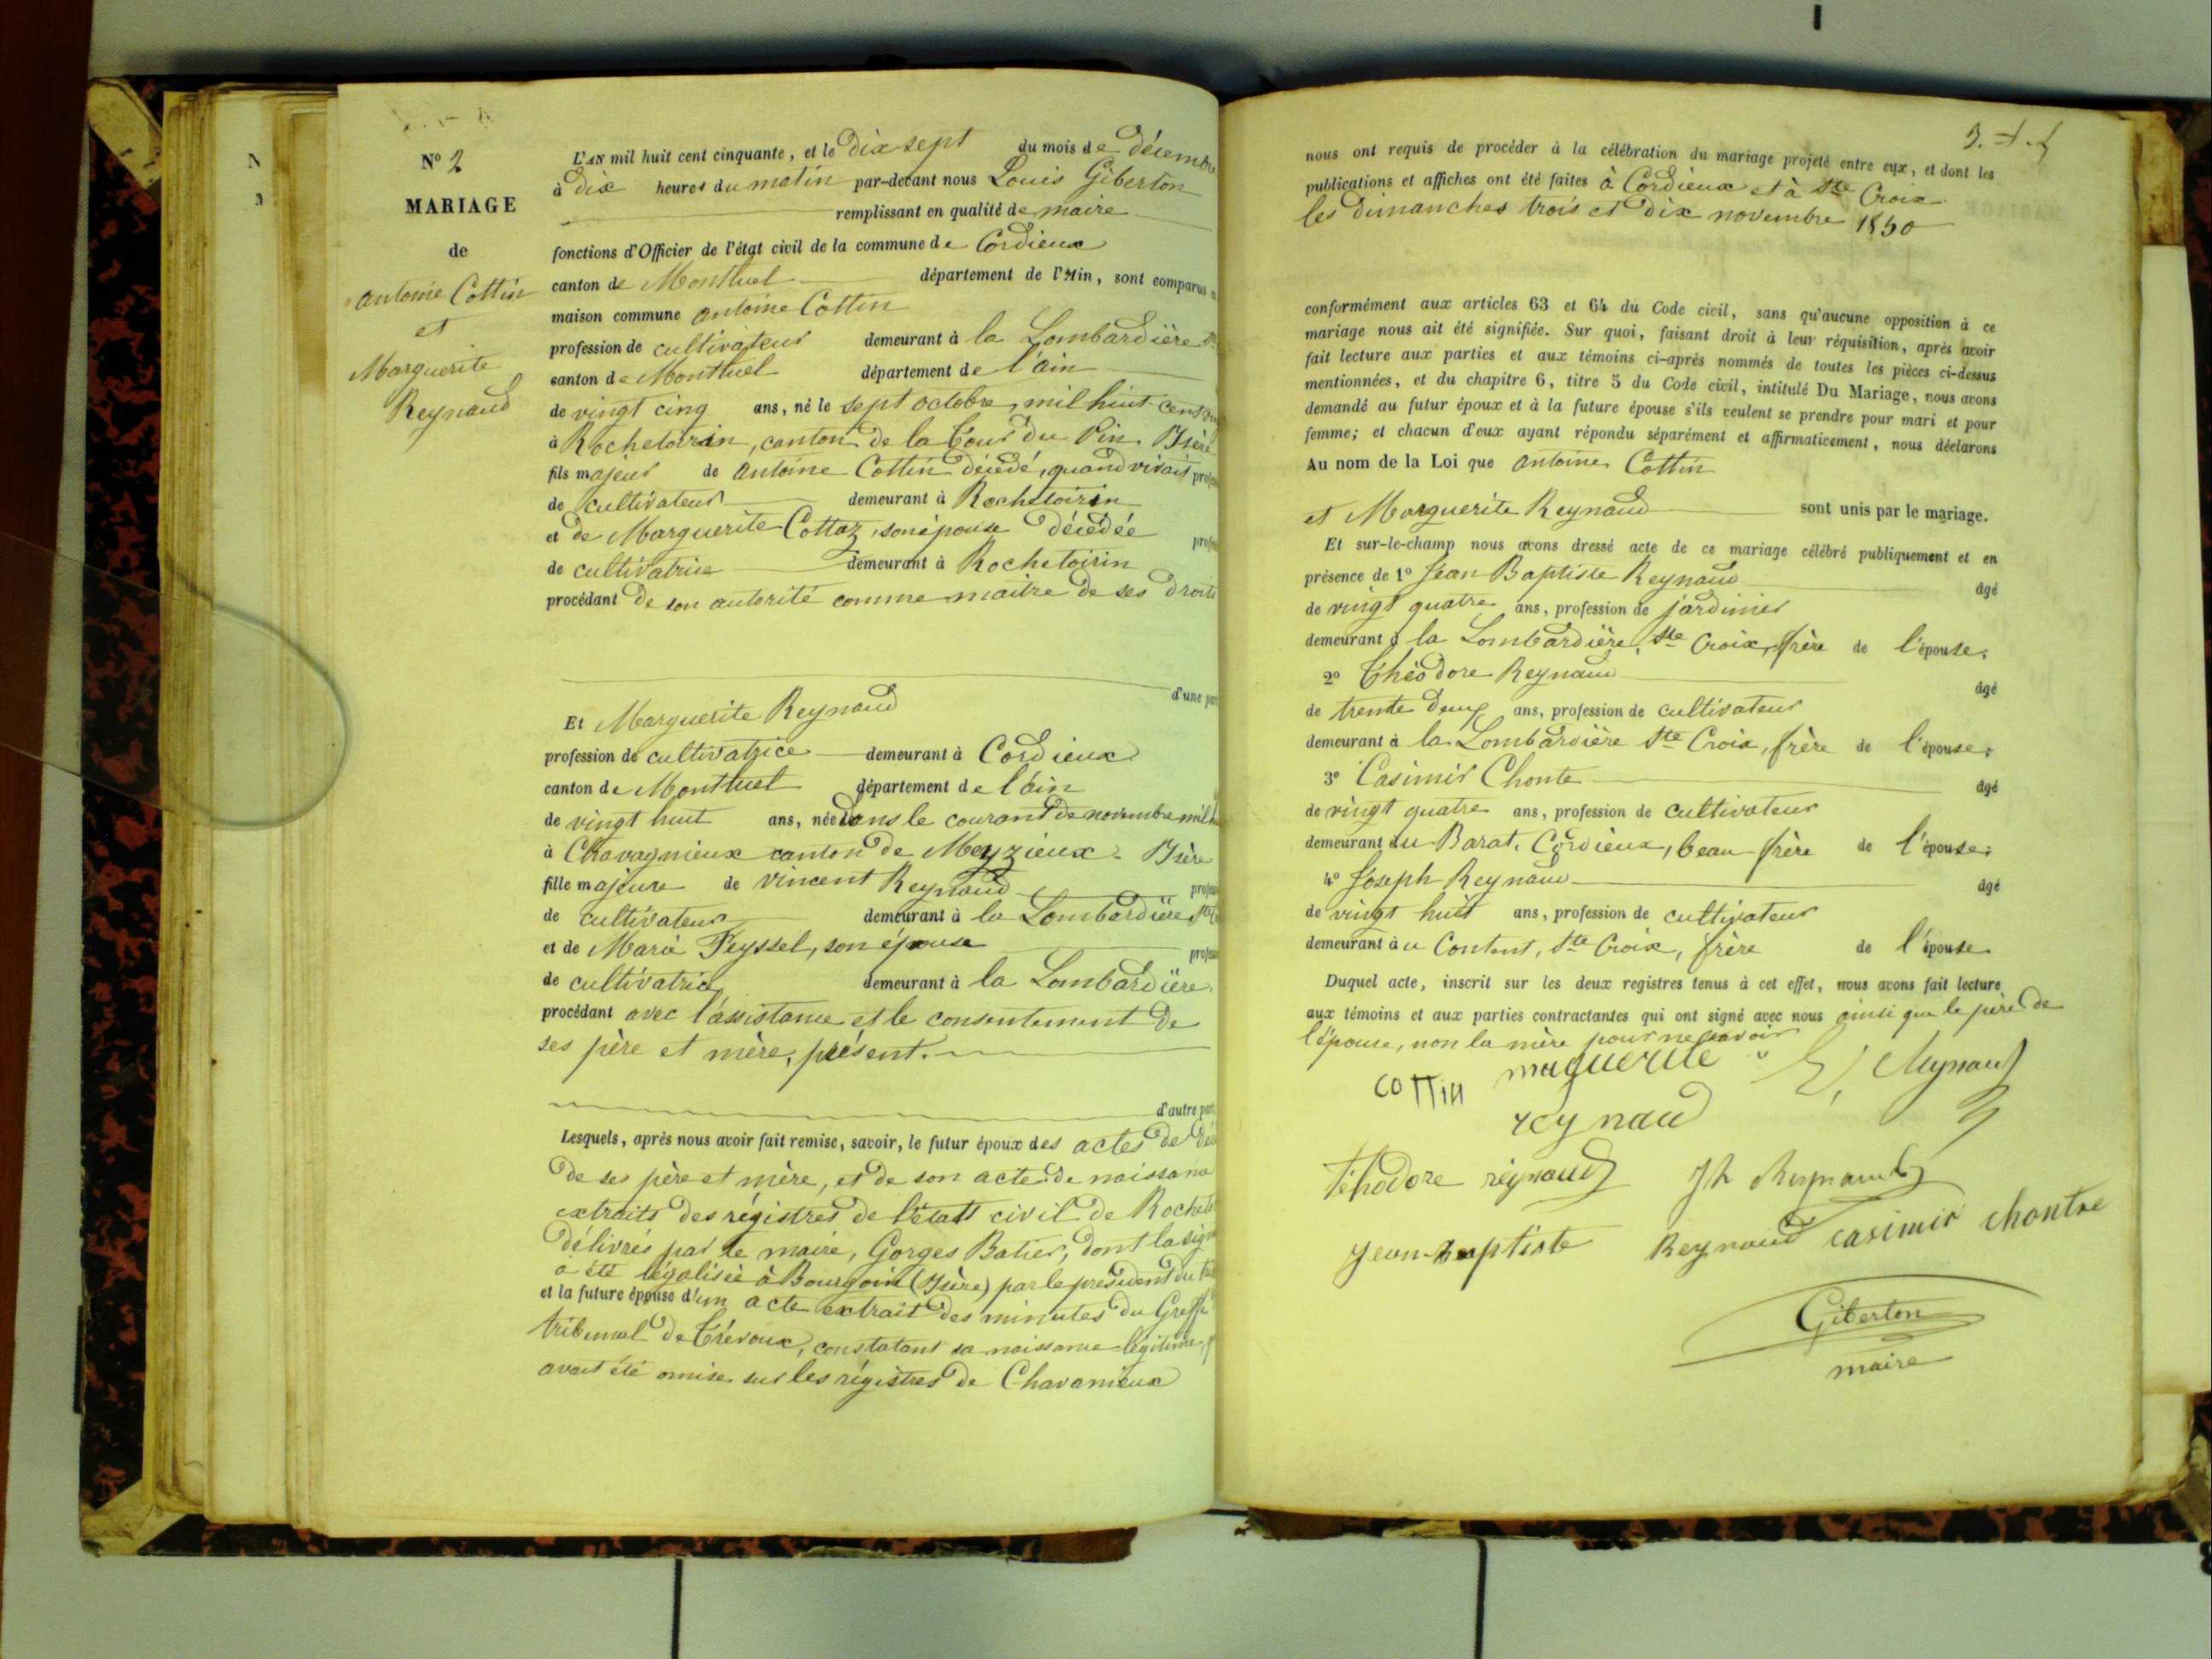 N
N° 2
MARIAGE
de
antoine Cottin
et
Marguerite
Reynaud
L'AN mil huit cent cinquante, et le dix sept du mois de décembre
à dix heures du matin par-devant nous Louis Giberton
remplissant en qualité de maire
fonctions d'Officier de l'état civil de la commune de Cordieux
canton de Montluel département de l'Ain, sont comparus
maison commune antoine Cottin
profession de cultivateur demeurant à la Lombardière
canton de Montluel département de l'ain
de vingt cinq ans, né le sept octobre, mil huit cent
à Rochetoirin, canton de la Tour du Pin. Isère
fils majeur de antoine Cottin décédé, quand vivait
de cultivateur demeurant à Rochetoirin
et de Marguerite Cottaz, son épouse décédée
de cultivatrice demeurant à Rochetoirin
procédant de son autorité comme maitre de ses droits
d'une
Et Marguerite Reynaud
profession de cultivatrice demeurant à Cordieux
canton de Montluel département de l'ain
de vingt huit ans, née dans le courant de novembre mil
à Chavagnieux canton de Meyzieux - Isère
fille majeure de vincent Reynaud
de cultivateur demeurant à la Lombardière
et de Marie Peyssel, son épouse
de cultivatrice demeurant à la Lombardière.
procédant avec l'assistance et le consentement de
ses père et mère, présent.
d'autre part
Lesquels, après nous avoir fait remise, savoir, le futur époux des actes de
de ses père et mère, et de son acte de naissance
extraits des régistres de l'état civil de
délivrés par le maire, Gorges Batier, dont la
a été légalisée à Bourgoin (Isère) par le président du
et la future épouse d'un acte extrait des minutes du Greffe
tribunal de Trévoux, constatant sa naissance légitime,
avait été omise sur les régistres de Chavanieux
nous ont requis de procéder à la célébration du mariage projeté entre eux, et dont les
publications et affiches ont été faites à Cordieux et à Ste Croix
les dimanches trois et dix novembre 1850
conformément aux articles 63 et 64 du Code civil, sans qu'aucune opposition à ce
mariage nous ait été signifiée. Sur quoi, faisant droit à leur réquisition, après avoir
fait lecture aux parties et aux témoins ci-après nommés de toutes les pièces ci-dessus
mentionnées, et du chapitre 6, titre 5 du Code civil, intitulé Du Mariage, nous avons
demandé au futur époux et à la future épouse s'ils veulent se prendre pour mari et pour
femme; et chacun d'eux ayant répondu séparément et affirmativement, nous déclarons
Au nom de la Loi que antoine Cottin
et Marguerite Reynaud sont unis par le mariage.
Et sur-le-champ nous avons dressé acte de ce mariage célébré publiquement et en
présence de 1° Jean Baptiste Reynaud âgé
de vingt quatre ans, profession de jardinier
demeurant à la Lombardière, Ste Croix, frère de l'épouse;
2° Théodore Reynaud âgé
de trente deux ans, profession de cultivateur
demeurant à la Lombardière Ste Croix, frère de l'épouse;
3° Casimir Chonte âgé
de vingt quatre ans, profession de cultivateur
demeurant au Barat, Cordieux, beau-frère de l'épouse;
4° Joseph Reynaud âgé
de vingt huit ans, profession de cultivateur
demeurant au Content, Ste Croix, frère de l'épouse
Duquel acte, inscrit sur les deux registres tenus à cet effet, nous avons fait lecture
aux témoins et aux parties contractantes qui ont signé avec nous ainsi que le père de
l'épouse, non la mère pour ne savoir
COTTIN maguerite Reynaud
reynaud
Téhodore reynaud Jh Reynaud
jean baptiste Reynaud casimir chontre
Giberton
maire